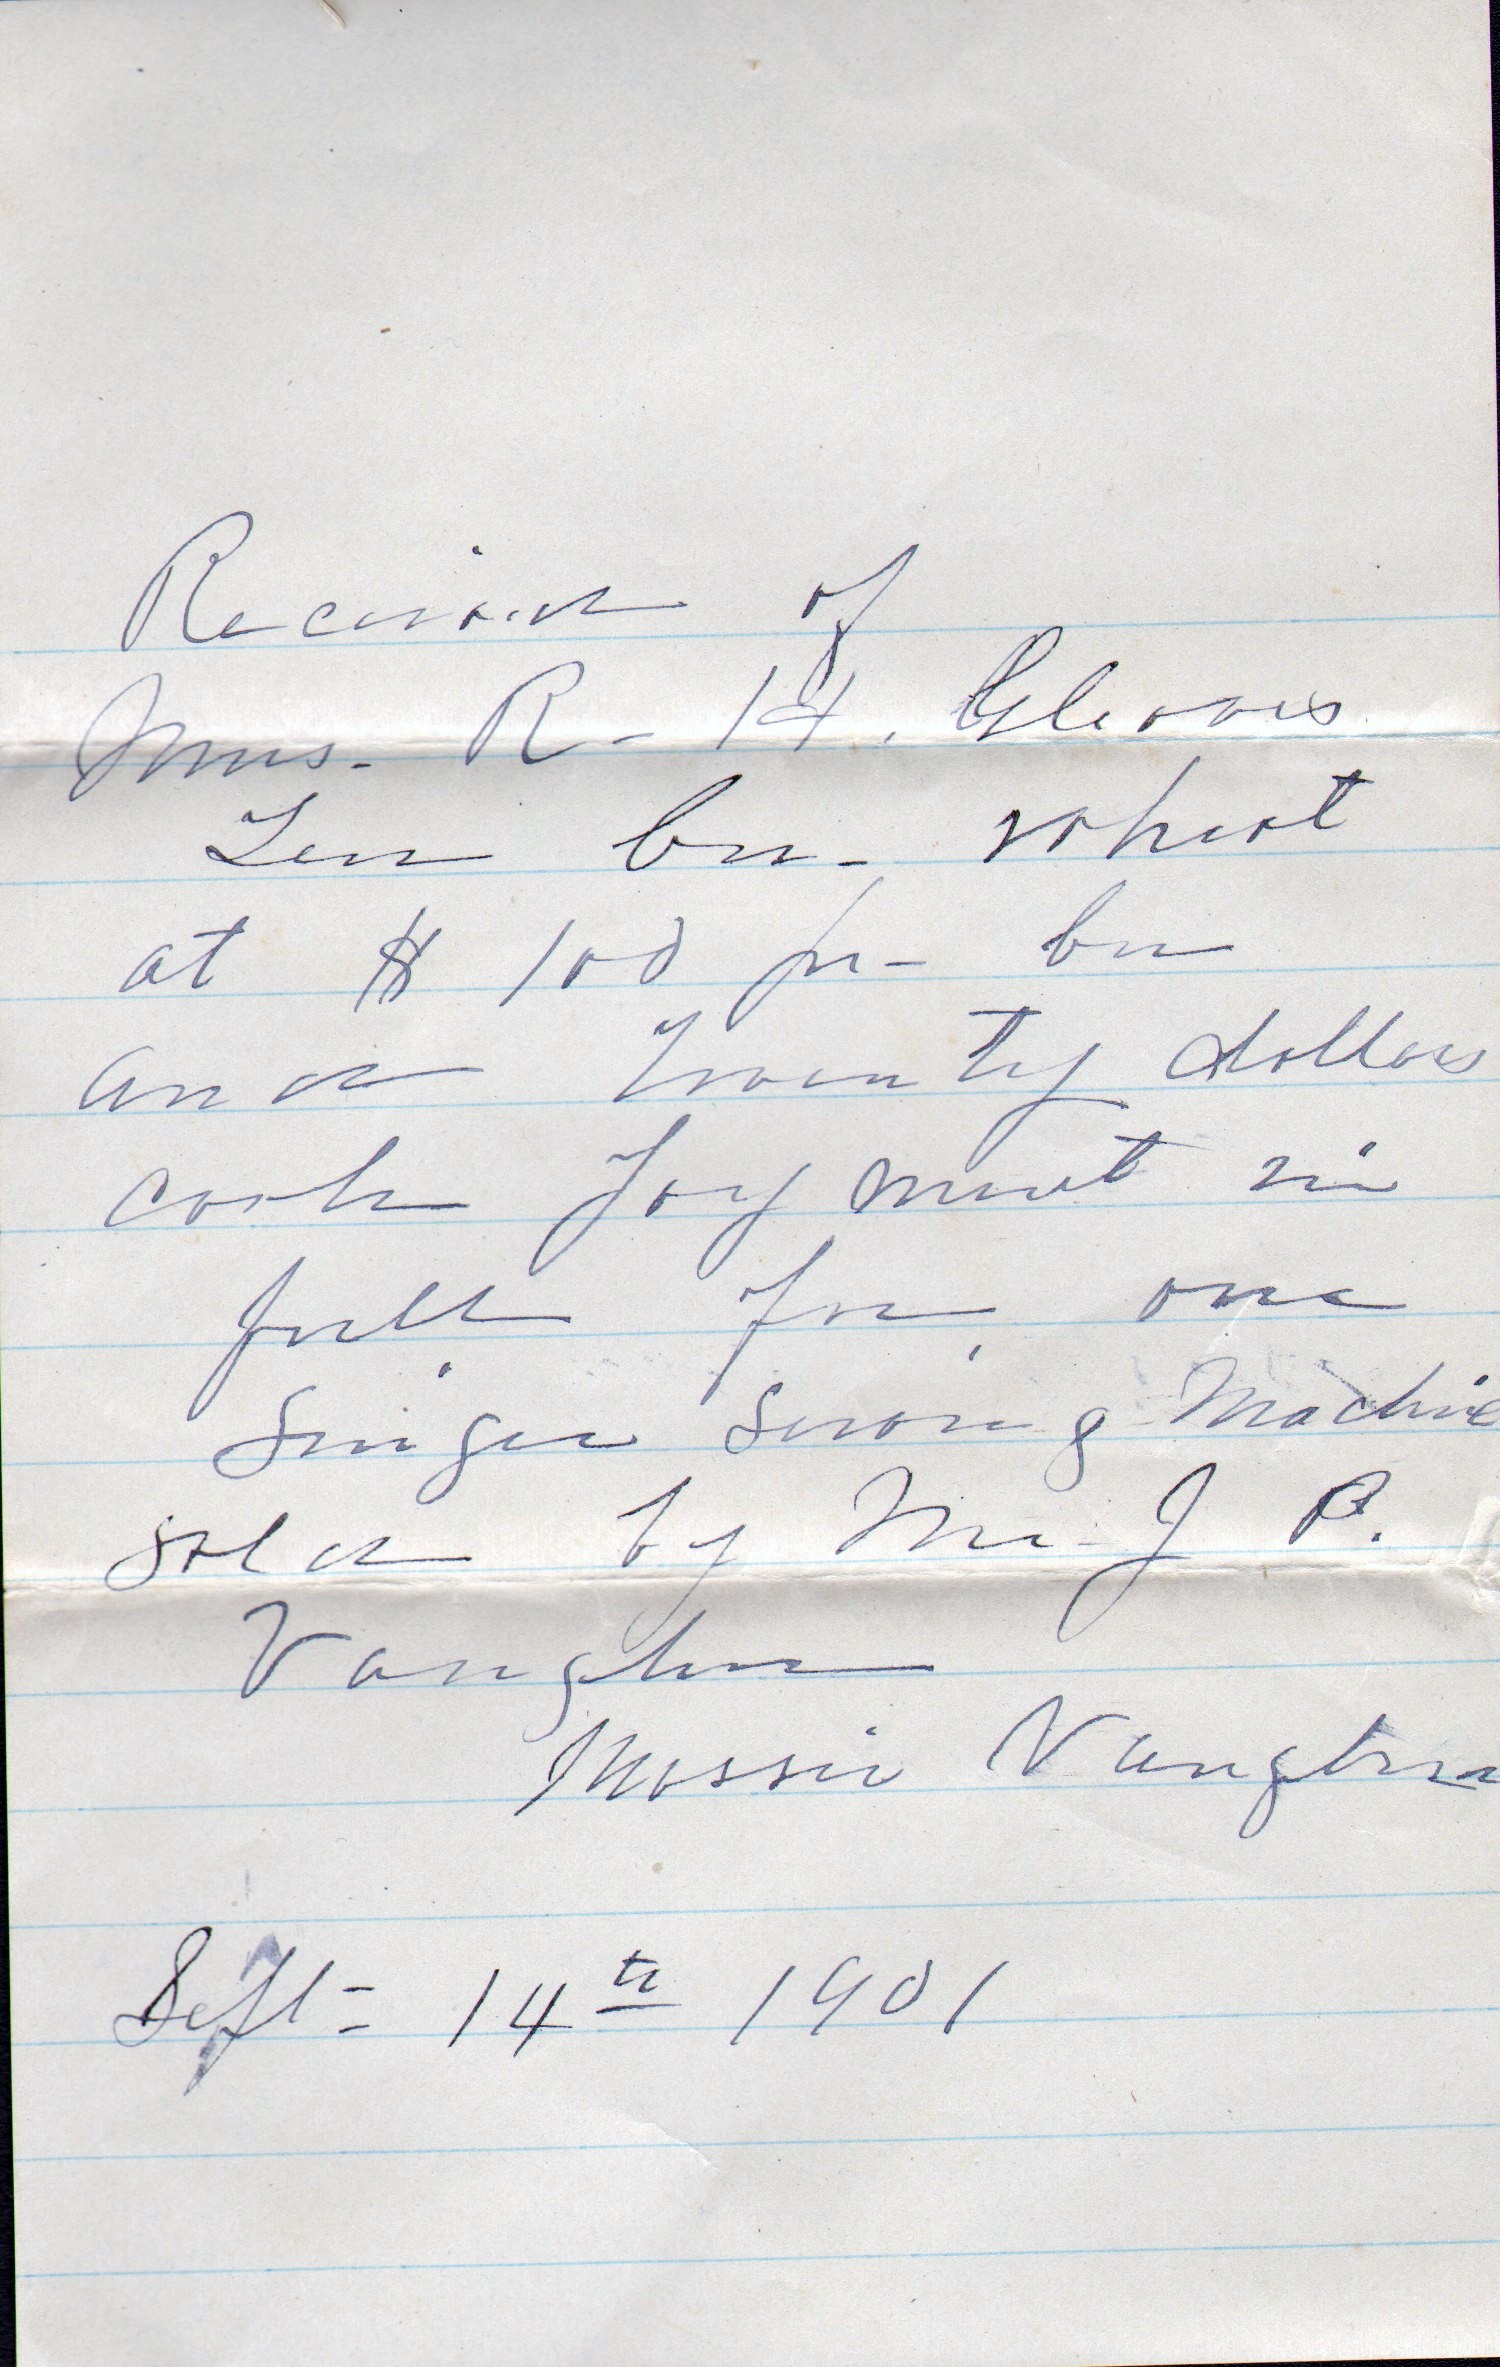 Received of
Mrs. R. H. Gleaves
Ten bu. wheat
at $ 100 pr bu
and Twenty dollars
cash Payment in
full for one
Singer Sewing Machine
sold by Mr. J P.
Vaughn
Mossie Vaughn
Sept = 14th 1901